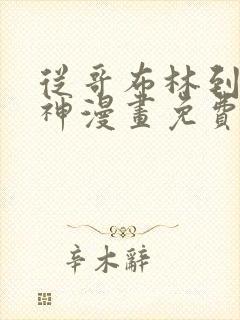 從哥布林到
神漫畫免費
辛木辭